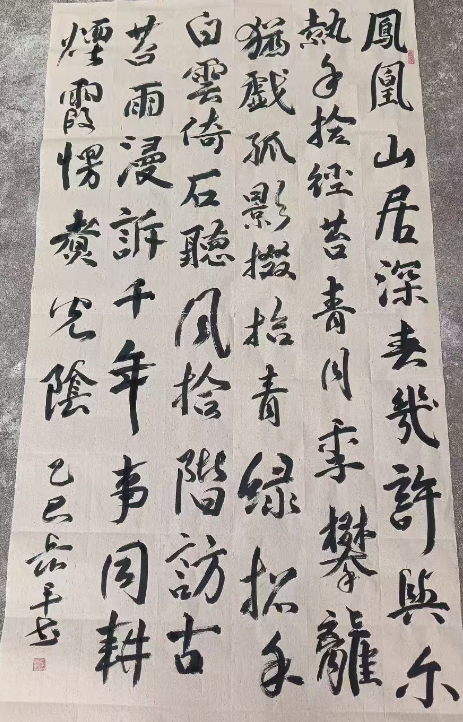 鳳凰山居深春幾許與尓
執手捨徑苔青月季攀籬
猶戲孤影掇拾青綠招手
白雲倚石聽風拾階訪古
苔雨漫訴千年事同耕
煙霞愣煮光陰
乙巳